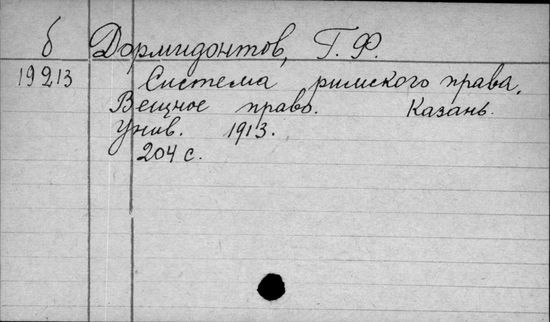 б Дормидонтов, Г. Ф.
19213 Система римского права.
Вещное право. Казань.
Унив. 1913.
204 с.